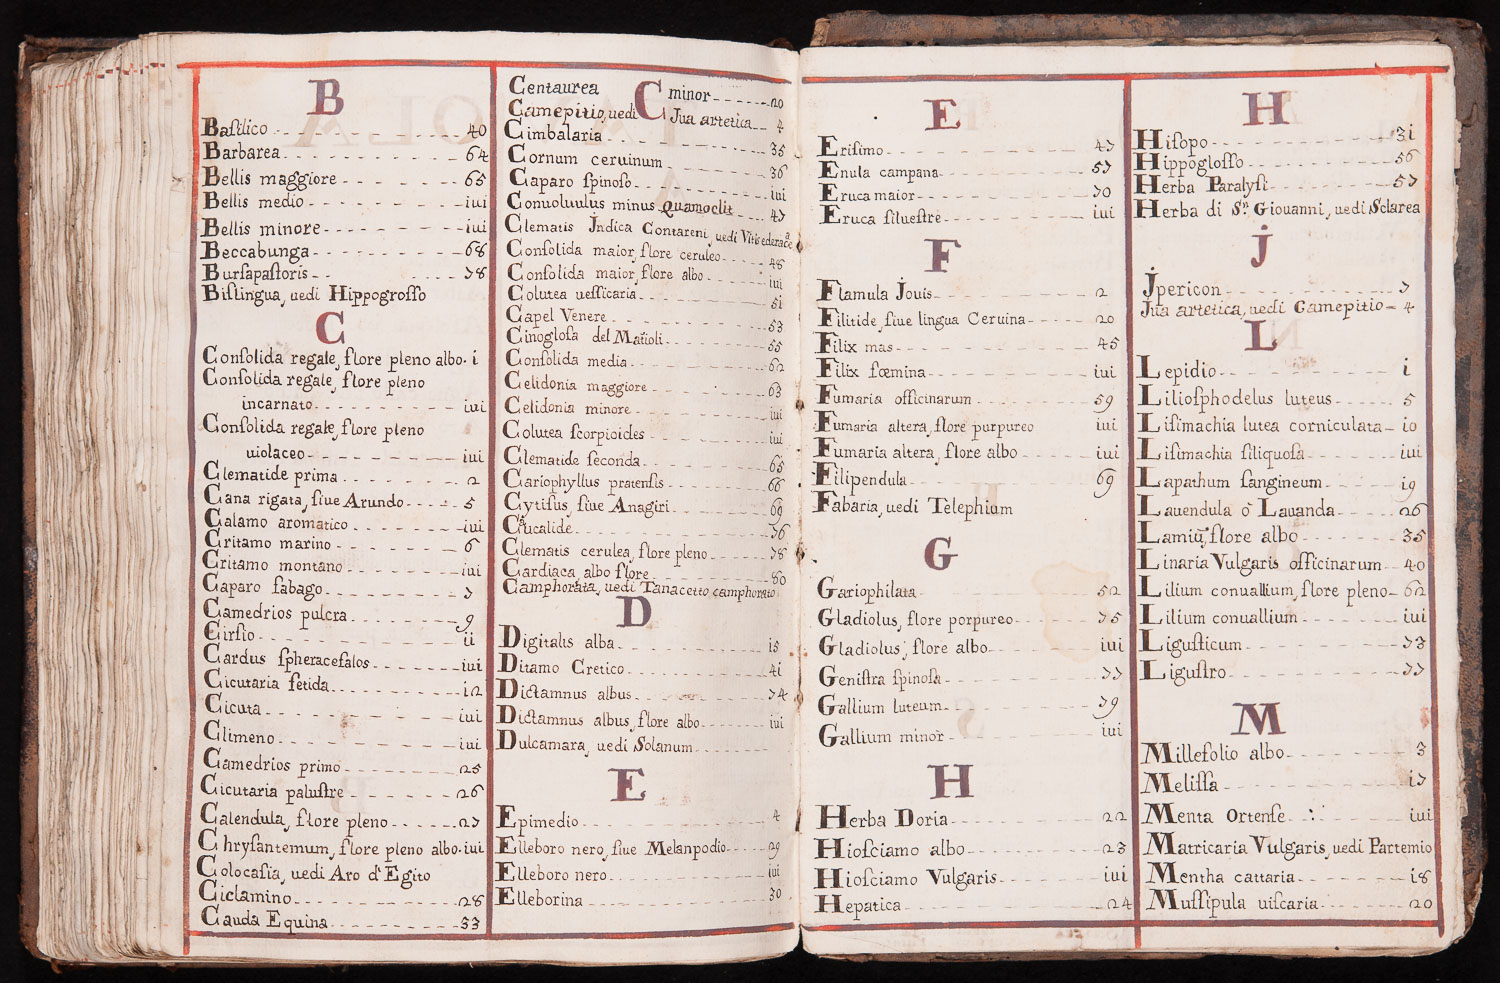 B
Baſilico 40
Barbarea 64
Bellis maggiore 65
Bellis medio iui
Bellis minore iui
Beccabunga 68
Burſapaſtoris 78
Biſlingua, uedi Hippogroſſo
C
Conſolida regale, flore pleno albo. i
Conſolida regale, flore pleno
incarnato iui
Conſolida regale, flore pleno
uiolaceo iui
Clematide prima 2
Cana rigata, ſiue Arundo 5
Calamo aromatico iui
Critamo marino 6
Critamo montano iui
Caparo fabago 7
Camedrios pulcra 9
Cirſio ii
Cardus ſpheracefalos iui
Cicutaria fetida i2
Cicuta iui
Climeno iui
Camedrios primo 25
Cicutaria paluſtre 26
Calendula, flore pleno 27
Chryſantemum, flore pleno albo. iui
Colocaſia, uedi Aro d'Egito
Ciclamino 28
Cauda Equina 33
Centaurea C minor 20
Camepitio, uedi Jua artetica 4
Cimbalaria 35
Cornum ceruinum 36
Caparo ſpinoſo iui
Conuoluulus minus Quamoclit 47
Clematis Jndica Contareni, uedi Vitis ederacea
Conſolida maior, flore ceruleo 48
Conſolida maior, flore albo iui
Colutea ueſſicaria 5i
Capel Venere 53
Cinogloſa del Matioli 55
Conſolida media 62
Celidonia maggiore 63
Celidonia minore iui
Colutea ſcorpioides iui
Clematide ſeconda 65
Cariophyllus pratenſis 66
Cytiſus, ſiue Anagiri 69
Caucalide 76
Clematis cerulea, flore pleno 78
Cardiaca, albo flore 80
Camphorata, uedi Tanacetto camphorato
D
Digitalis alba i5
Ditamo Cretico 4i
Dictamnus albus 74
Dictamnus albus, flore albo iui
Dulcamara, uedi Solanum
E
Epimedio 4
Elleboro nero, ſiue Melanpodio 29
Elleboro nero iui
Elleborina 30
E
Eriſimo 47
Enula campana 57
Eruca maior 70
Eruca ſilueſtre iui
F
Flamula Jouis 2
Filitide, ſiue lingua Ceruina 20
Filix mas 45
Filix fœmina iui
Fumaria officinarum 59
Fumaria altera, flore purpureo iui
Fumaria altera, flore albo iui
Filipendula 69
Fabaria, uedi Telephium
G
Gariophilata 52
Gladiolus, flore porpureo 75
Gladiolus, flore albo iui
Geniſtra ſpinoſa 77
Gallium luteum 79
Gallium minor iui
H
Herba Doria 22
Hioſciamo albo 23
Hioſciamo Vulgaris iui
Hepatica 24
H
Hiſopo 3i
Hippogloſſo 56
Herba Paralyſi 57
Herba di S.n Giouanni, uedi Sclarea
J
Jpericon 7
Jua artetica, uedi Camepitio 4
L
Lepidio i
Lilioſphodelus luteus 5
Liſimachia lutea corniculata io
Liſimachia ſiliquoſa iui
Lapathum ſangineum i9
Lauendula ò Lauanda 26
Lamiū, flore albo 35
Linaria Vulgaris officinarum 40
Lilium conuallium, flore pleno 62
Lilium conuallium iui
Liguſticum 73
Liguſtro 77
M
Millefolio albo 3
Meliſſa i7
Menta Ortenſe iui
Matricaria Vulgaris, uedi Partemio
Mentha cattaria i8
Muſſipula uiſcaria 20